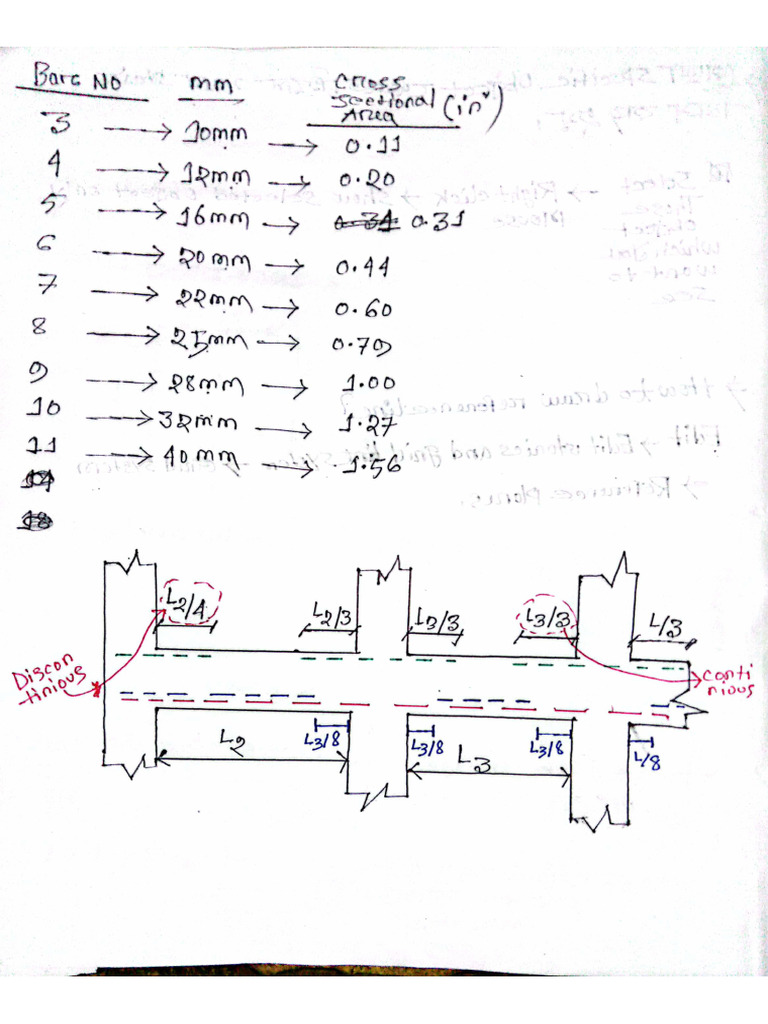 Bars No mm Cross Sectional Area (in²)
3 → 10mm → 0.11
4 → 12mm → 0.20
5 → 16mm → 0.31 0.31
6 → 20mm → 0.44
7 → 22mm → 0.60
8 → 25mm → 0.79
9 → 28mm → 1.00
10 → 32mm → 1.27
11 → 40mm → 1.56
14
18
L2/4 L2/3 L3/3 L3/3 L/3
Discon
-tinious
conti
nious
L3/8 L3/8 L3/8 L/8
L2 L3